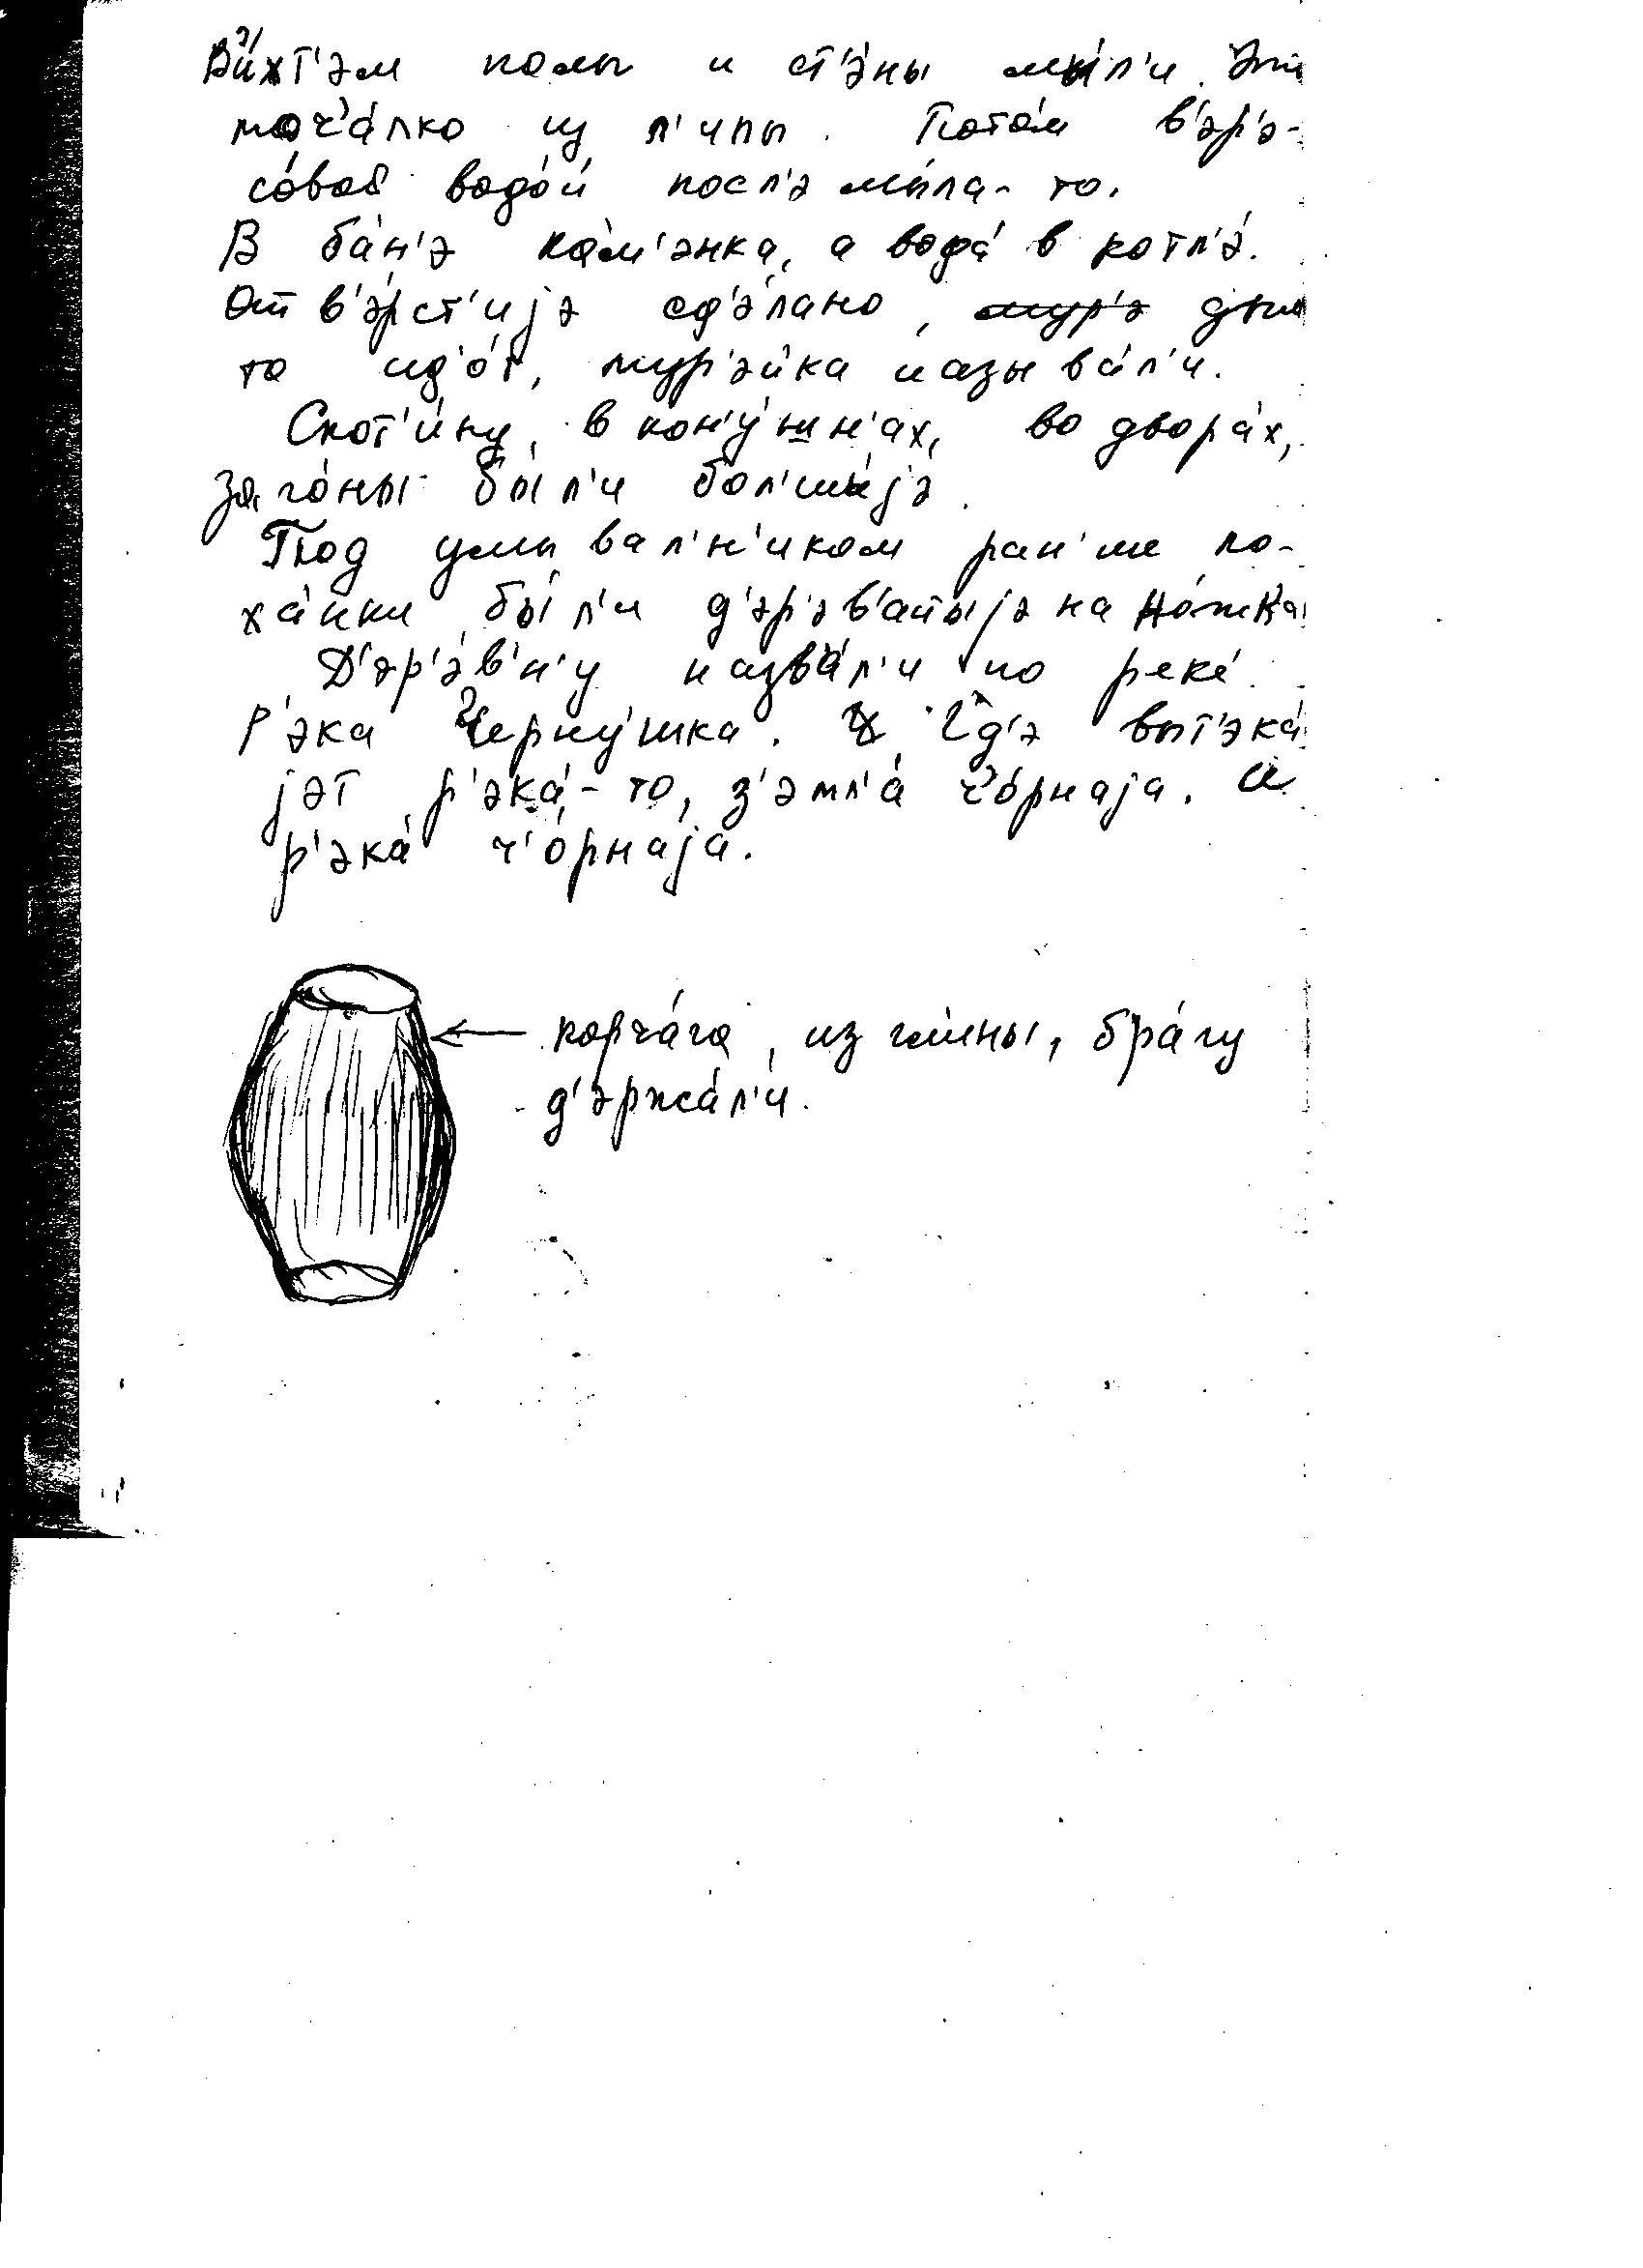 В'и́хт'эм полы и ст'э́ны мы́л'и. Эт
моч'а́лко из л'ипы. Пото́м в'эр'э-
со́вой водо́й посл'э мы́ла-то.
В ба́н'э ка́м'энка, а вода́ в котл'э́.
Отв'э́рст'иjэ сд'э́лано, дым
то ид'о́т, мур'э́йка называ́л'и.
Скот'и́ну, в кон'у́шн'ах, во двора́х,
заго́ны бы́л'и бол'шы́jэ.
Под умывал'н'иком ран'ше ло-
ха́нки бы́л'и д'эр'эв'аныjэ на но́жка
Д'эр'э́в'н'у назва́л'и по реке́.
Р'эка Черну́шка. Гд'э выт'эка́
jэт р'эка́-то, з'эмл'а́ ч'о́рнаjа. И
р'эка́ ч'о́рнаjа.
корча́га, из глины, бра́гу
д'эржа́л'и.